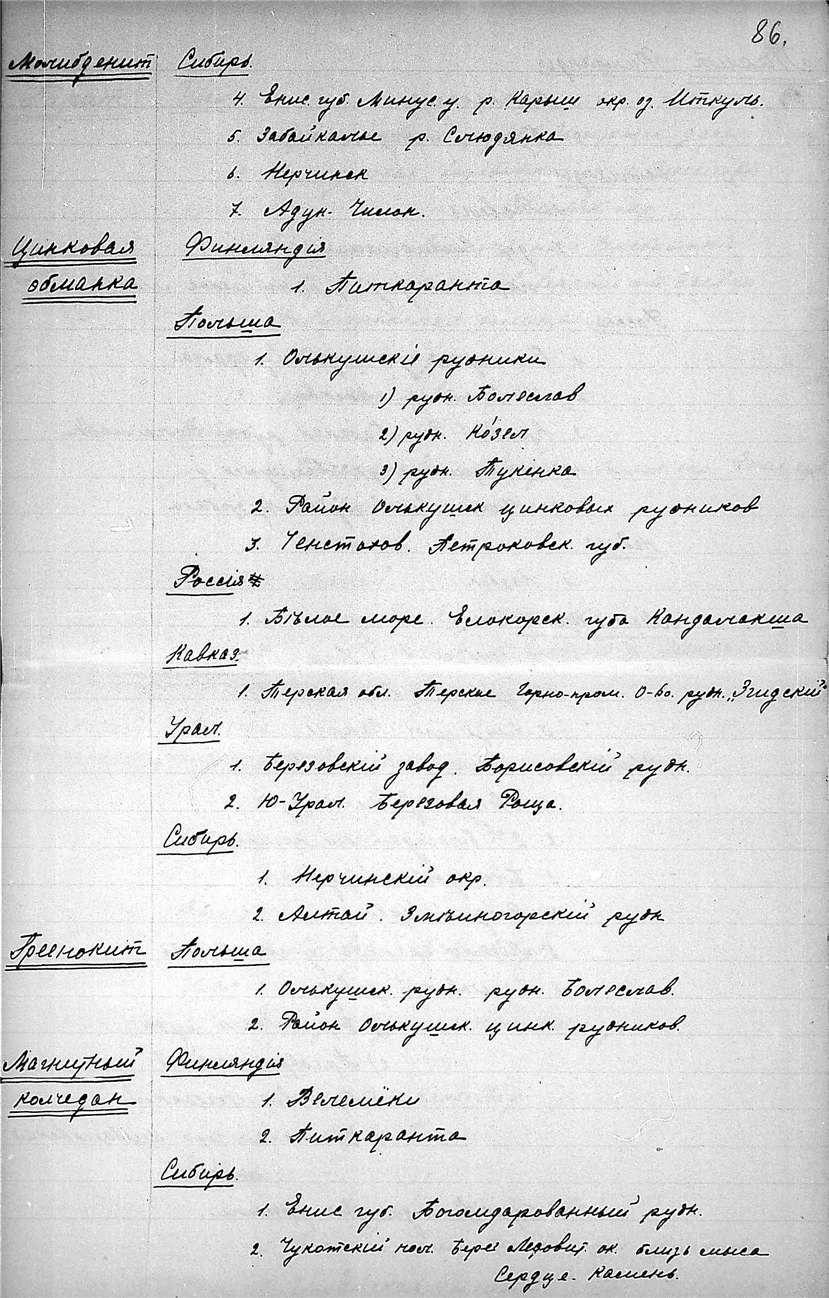 86.
Молибденит Сибирь.
4. Енис губ. Минус. у. р. Карыш окр. оз. Иткуль.
5. Забайкалье р. Слюдянка
6. Нерчинск
7. Адун. Чилон.
Цинковая Финляндія
обманка 1. Питкаранта
Польша
1. Олькушскіе рудники
1) рудн. Болеслав
2) рудн. Ко́зел
3) рудн. Пукенка
2. Район Олькушск цинковых рудников
3. Ченстохов. Петроковск. губ.
Россія
1. Бѣлое море. Елокорск. губа Кандалакша
Кавказ.
1. Терская обл. Терское Горно-пром. О-во. рудн. „Эгидский"
Урал.
1. Березовскій завод. Борисовскій рудн.
2. Ю-Урал. Березовая Роща.
Сибирь.
1. Нерчинскій окр.
2. Алтай. Змѣиногорскій рудн
Греенокит Польша
1. Олькушск. рудн. рудн. Болеслав.
2. Район Олькушск. цинк. рудников.
Магнитный Финляндія
колчедан 1. Велемёки
2. Питкаранта
Сибирь.
1. Енис губ. Богомдарованный рудн.
2. Чукотскій пол. Берег Ледовит. ок. близь мыса
Сердце. Камень.